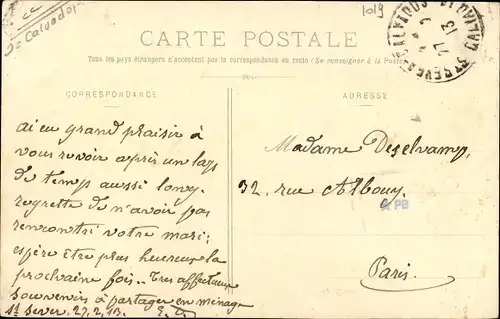 1019
Calvados
CARTE POSTALE
Tous les pays étrangers n'acceptent pas la correspondance au recto (Se renseigner à la Poste)
CORRESPONDANCE
ADRESSE
ai eu grand plaisir à
vous revoir après un laps
de temps aussi long.
regrette de n'avoir pas
rencontré votre mari;
espère être plus heureux la
prochaine fois.. Très affectueux
souvenirs à partager en ménage
St Sever. 27.2.13.
Madame Deselvamp,
32, rue Albouy.
PB
Paris.